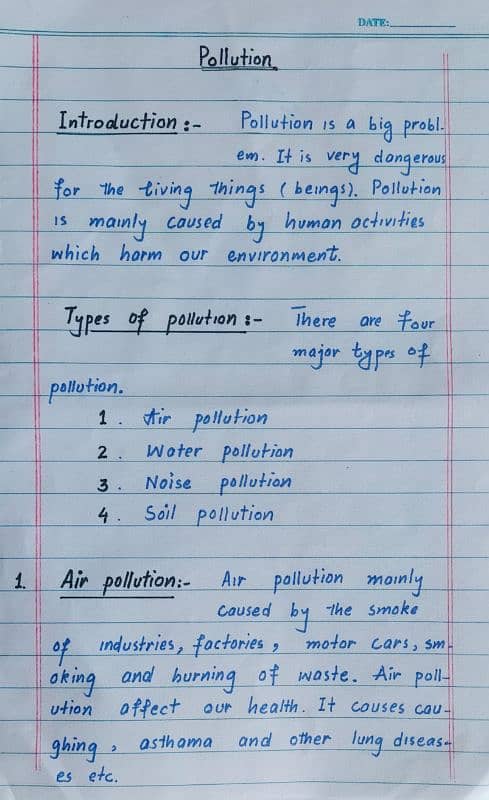 DATE:
Pollution
Introduction :- Pollution is a big probl-
em. It is very dangerous
for the living things (beings). Pollution
is mainly caused by human activities
which harm our environment.
Types of pollution :- There are four
major types of
pollution.
1. Air pollution
2. Water pollution
3. Noise pollution
4. Soil pollution
1. Air pollution:- Air pollution mainly
caused by the smoke
of industries, factories, motor cars, sm-
oking and burning of waste. Air poll-
ution affect our health. It causes cau-
ghing, asthama and other lung diseas-
es etc.